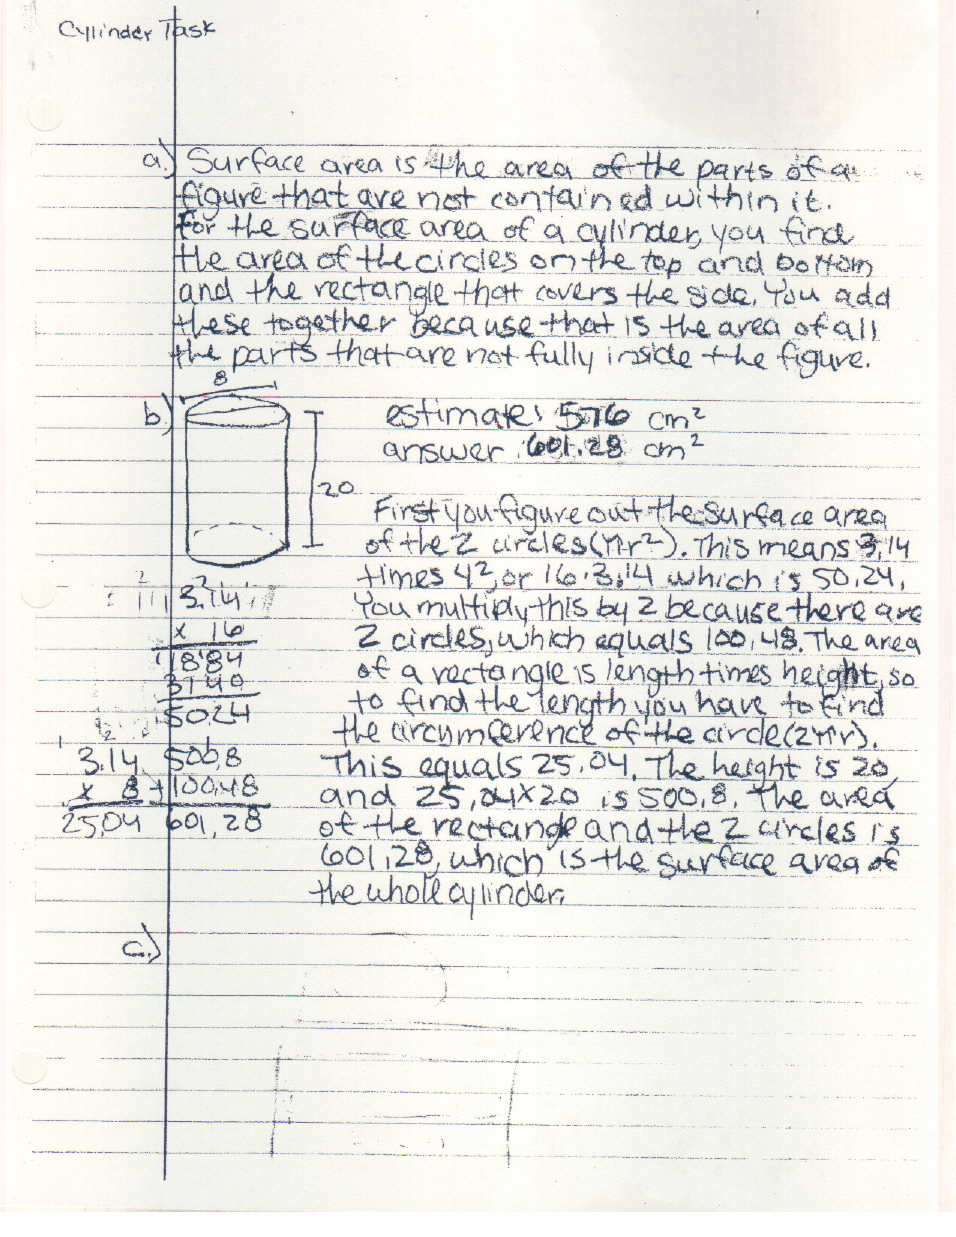 Cylinder Task
a.) Surface area is the area of the parts of a
figure that are not contained within it.
For the surface area of a cylinder, you find
the area of the circles on the top and bottom
and the rectangle that covers the side. You add
these together because that is the area of all
the parts that are not fully inside the figure.
8
b.) estimate: 576 cm²
answer: 601.28 cm²
20
First you figure out the surface area
of the 2 circles (πr²). This means 3.14
times 4², or 16·3.14 which is 50.24.
You multiply this by 2 because there are
2 circles, which equals 100.48. The area
of a rectangle is length times height, so
to find the length you have to find
the circumference of the circle (2πr).
This equals 25.04. The height is 20,
and 25.04x20 is 500.8. The area
of the rectangle and the 2 circles is
601.28, which is the surface area of
the whole cylinder.
2 2
3.14
x 16
1 1
1884
3140
50.24
1
3.14
x 8
25.04
1
500.8
+100.48
601.28
c.)